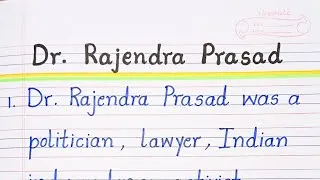 Dr. Rajendra Prasad
1. Dr. Rajendra Prasad was a
politician, lawyer, Indian